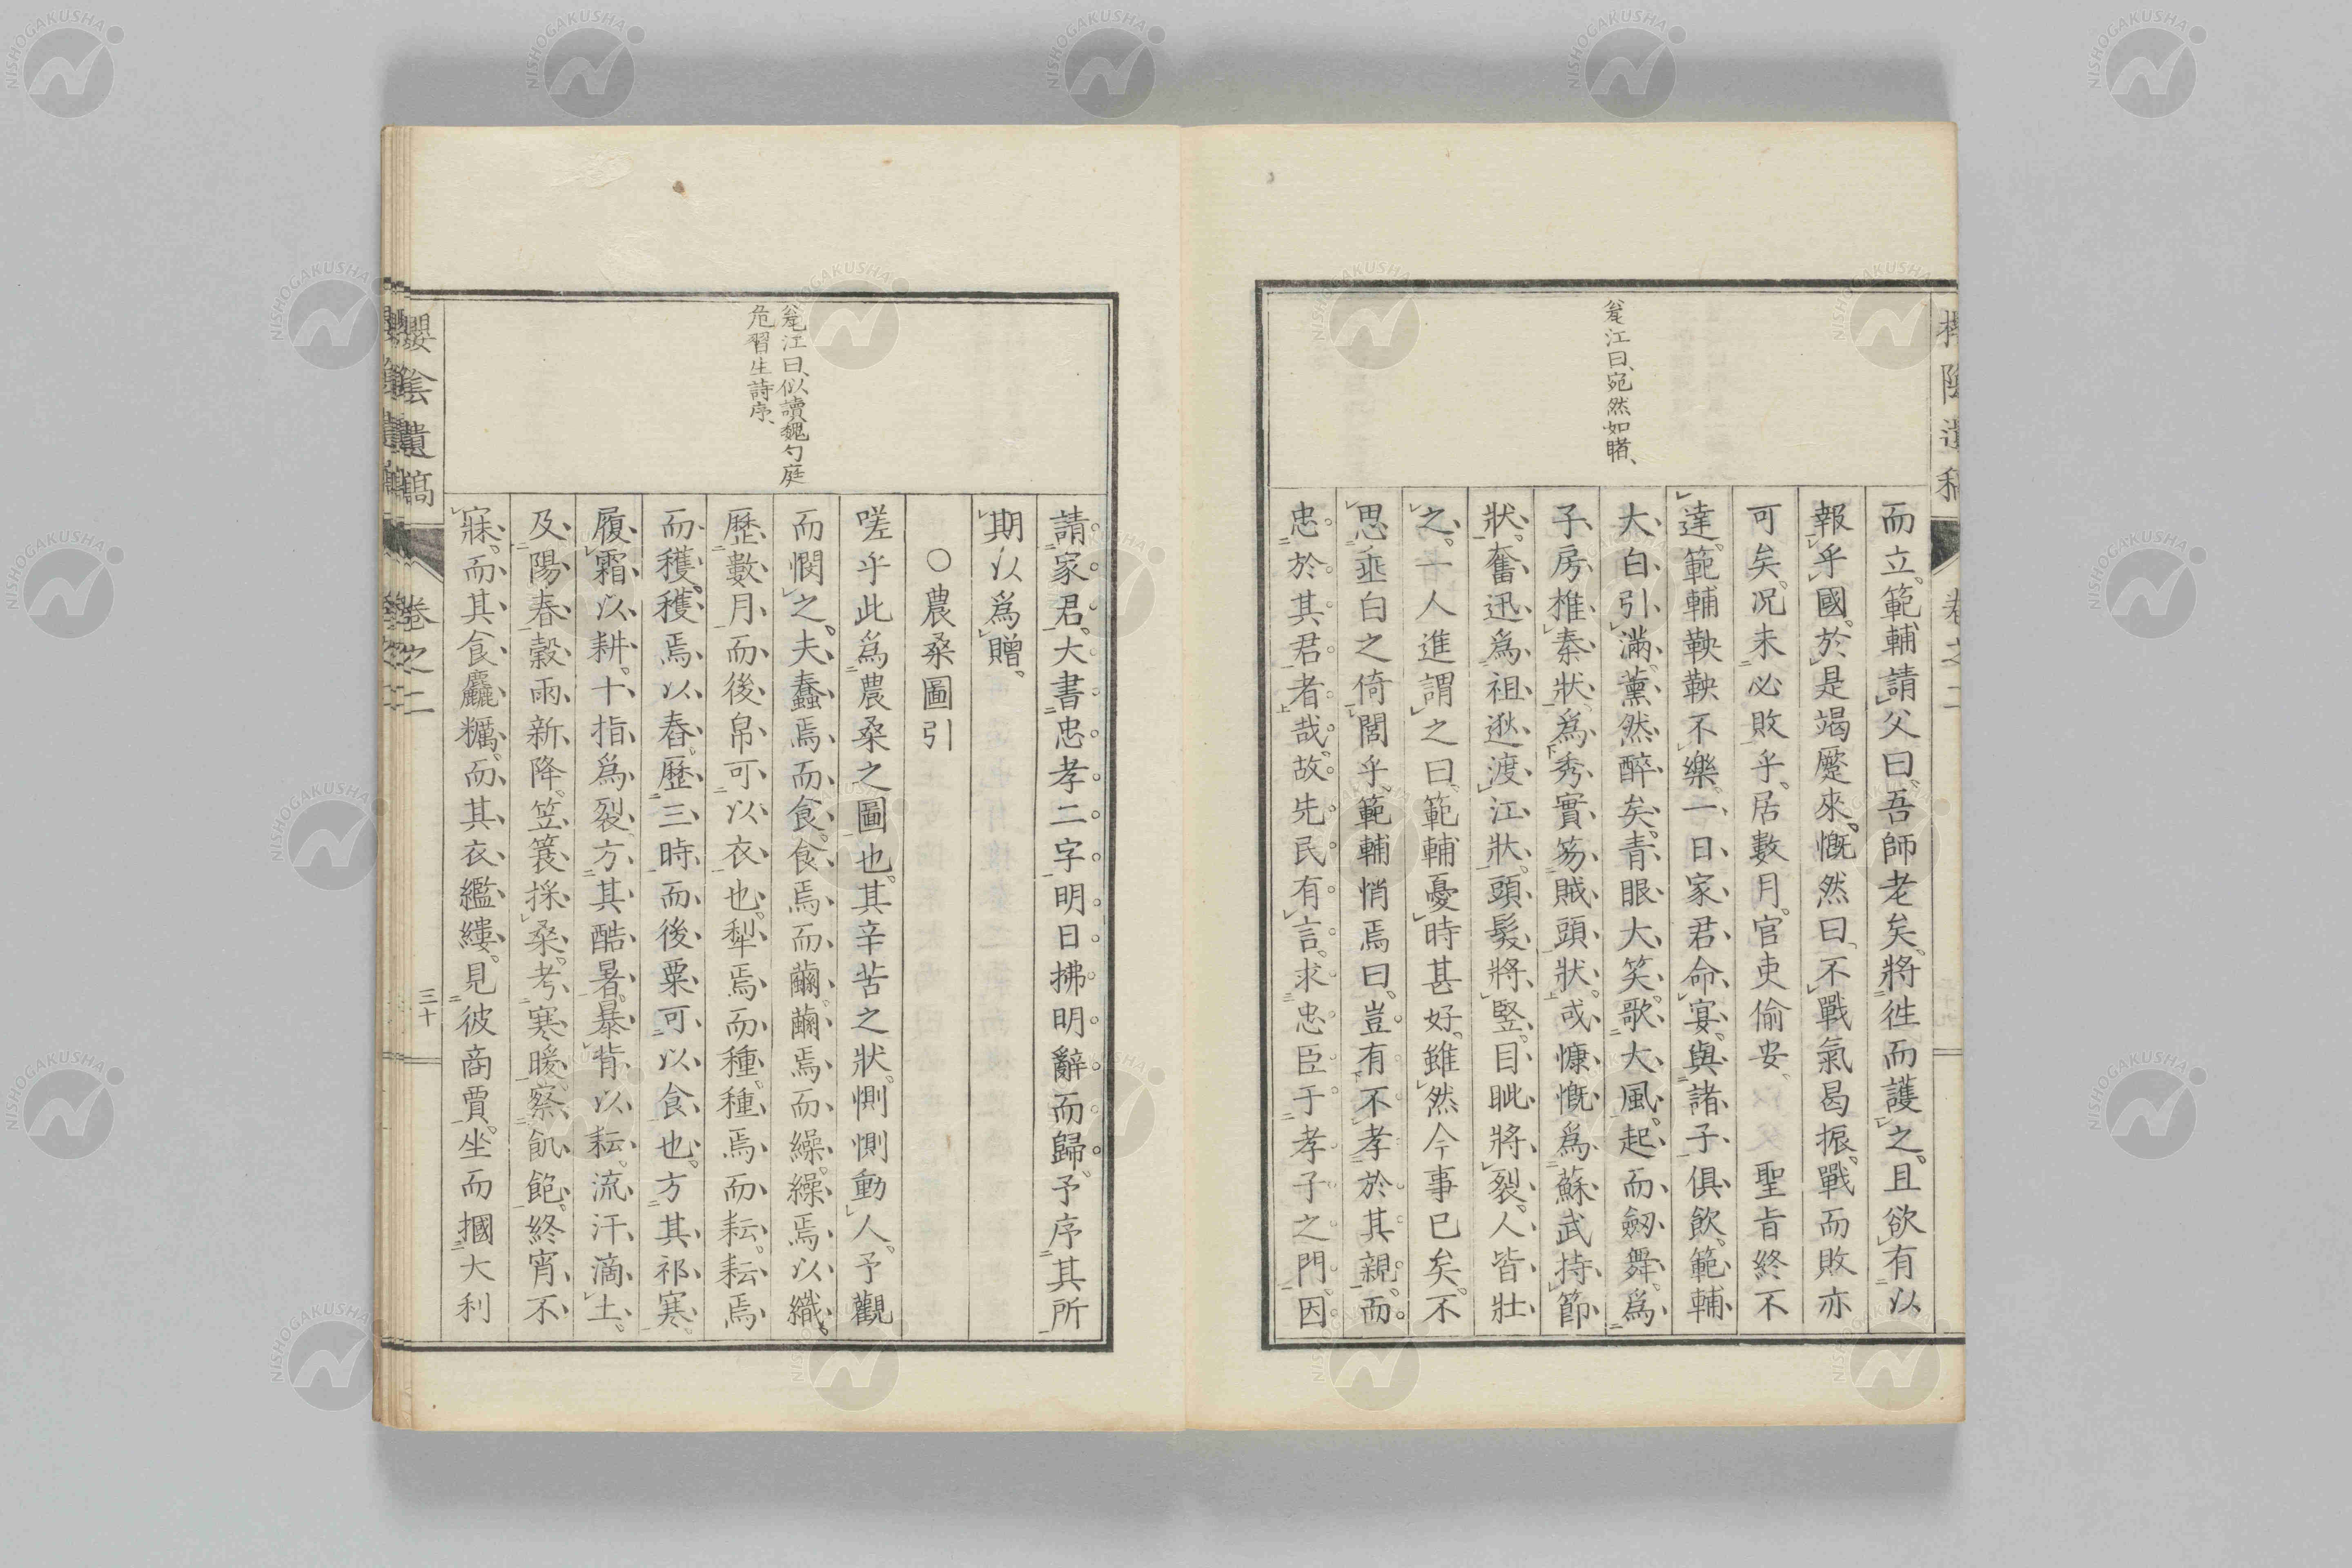 甕江曰、宛然如睹、
而立。範輔請父曰。吾師老矣。將往而護之。且欲有以
報乎國。於是竭蹙來。慨然曰。不戰氣曷振。戰而敗亦
可矣。况未必敗乎。居數月。官吏偷安。聖旨終不
達。範輔鞅鞅不樂。一日家君命宴。與諸子俱飲。範輔
大白引滿。薰然醉矣。青眼大笑。歌大風起。而劒舞。爲
子房椎秦狀。爲秀實笏賊頭狀。或慷慨爲蘇武持節
狀。奮迅爲祖逖渡江狀。頭髮將竪。目眦將裂。人皆壯
之。一人進謂之曰。範輔憂時甚好。雖然今事已矣。不
思垂白之倚閭乎。範輔悄焉曰。豈有不孝於其親。而
忠於其君者哉。故先民有言。求忠臣于孝子之門。因
甕江曰、似讀魏勺庭
危習生詩序、
請家君。大書忠孝二字明日拂明辭而歸。予序其所
期以爲贈。
○農桑圖引
嗟乎此爲農桑之圖也。其辛苦之狀。惻惻動人。予觀
而憫之。夫蠶焉而食。食焉而繭。繭焉而繰。繰焉以織。
歷數月而後帛可以衣也。犁焉而種。種焉而耘。耘焉
而穫。穫焉以舂。歷三時而後粟可以食也。方其祁寒。
履霜以耕。十指爲裂。方其酷暑。暴背以耘。流汗滴土。
及陽春穀雨新降。笠簑採桑。考寒暖。察飢飽。終宵不
寐。而其食麤糲。而其衣繿縷。見彼商賈。坐而摑大利
櫻陰遺稿
卷之二
三十